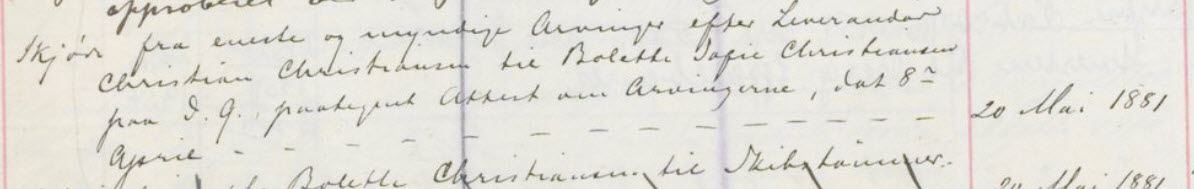 approberet
Skjøde fra eneste og myndige Arvinger efter Leverandør
Christian Christiansen til Bolette Sofie Christiansen
paa d. G., paategnet Attest om Arvingerne, dat 8de
April - - - - - - - - - - - 20 Mai 1881
Bolette Christiansen til Skibstømmer.
20 Mai 1881